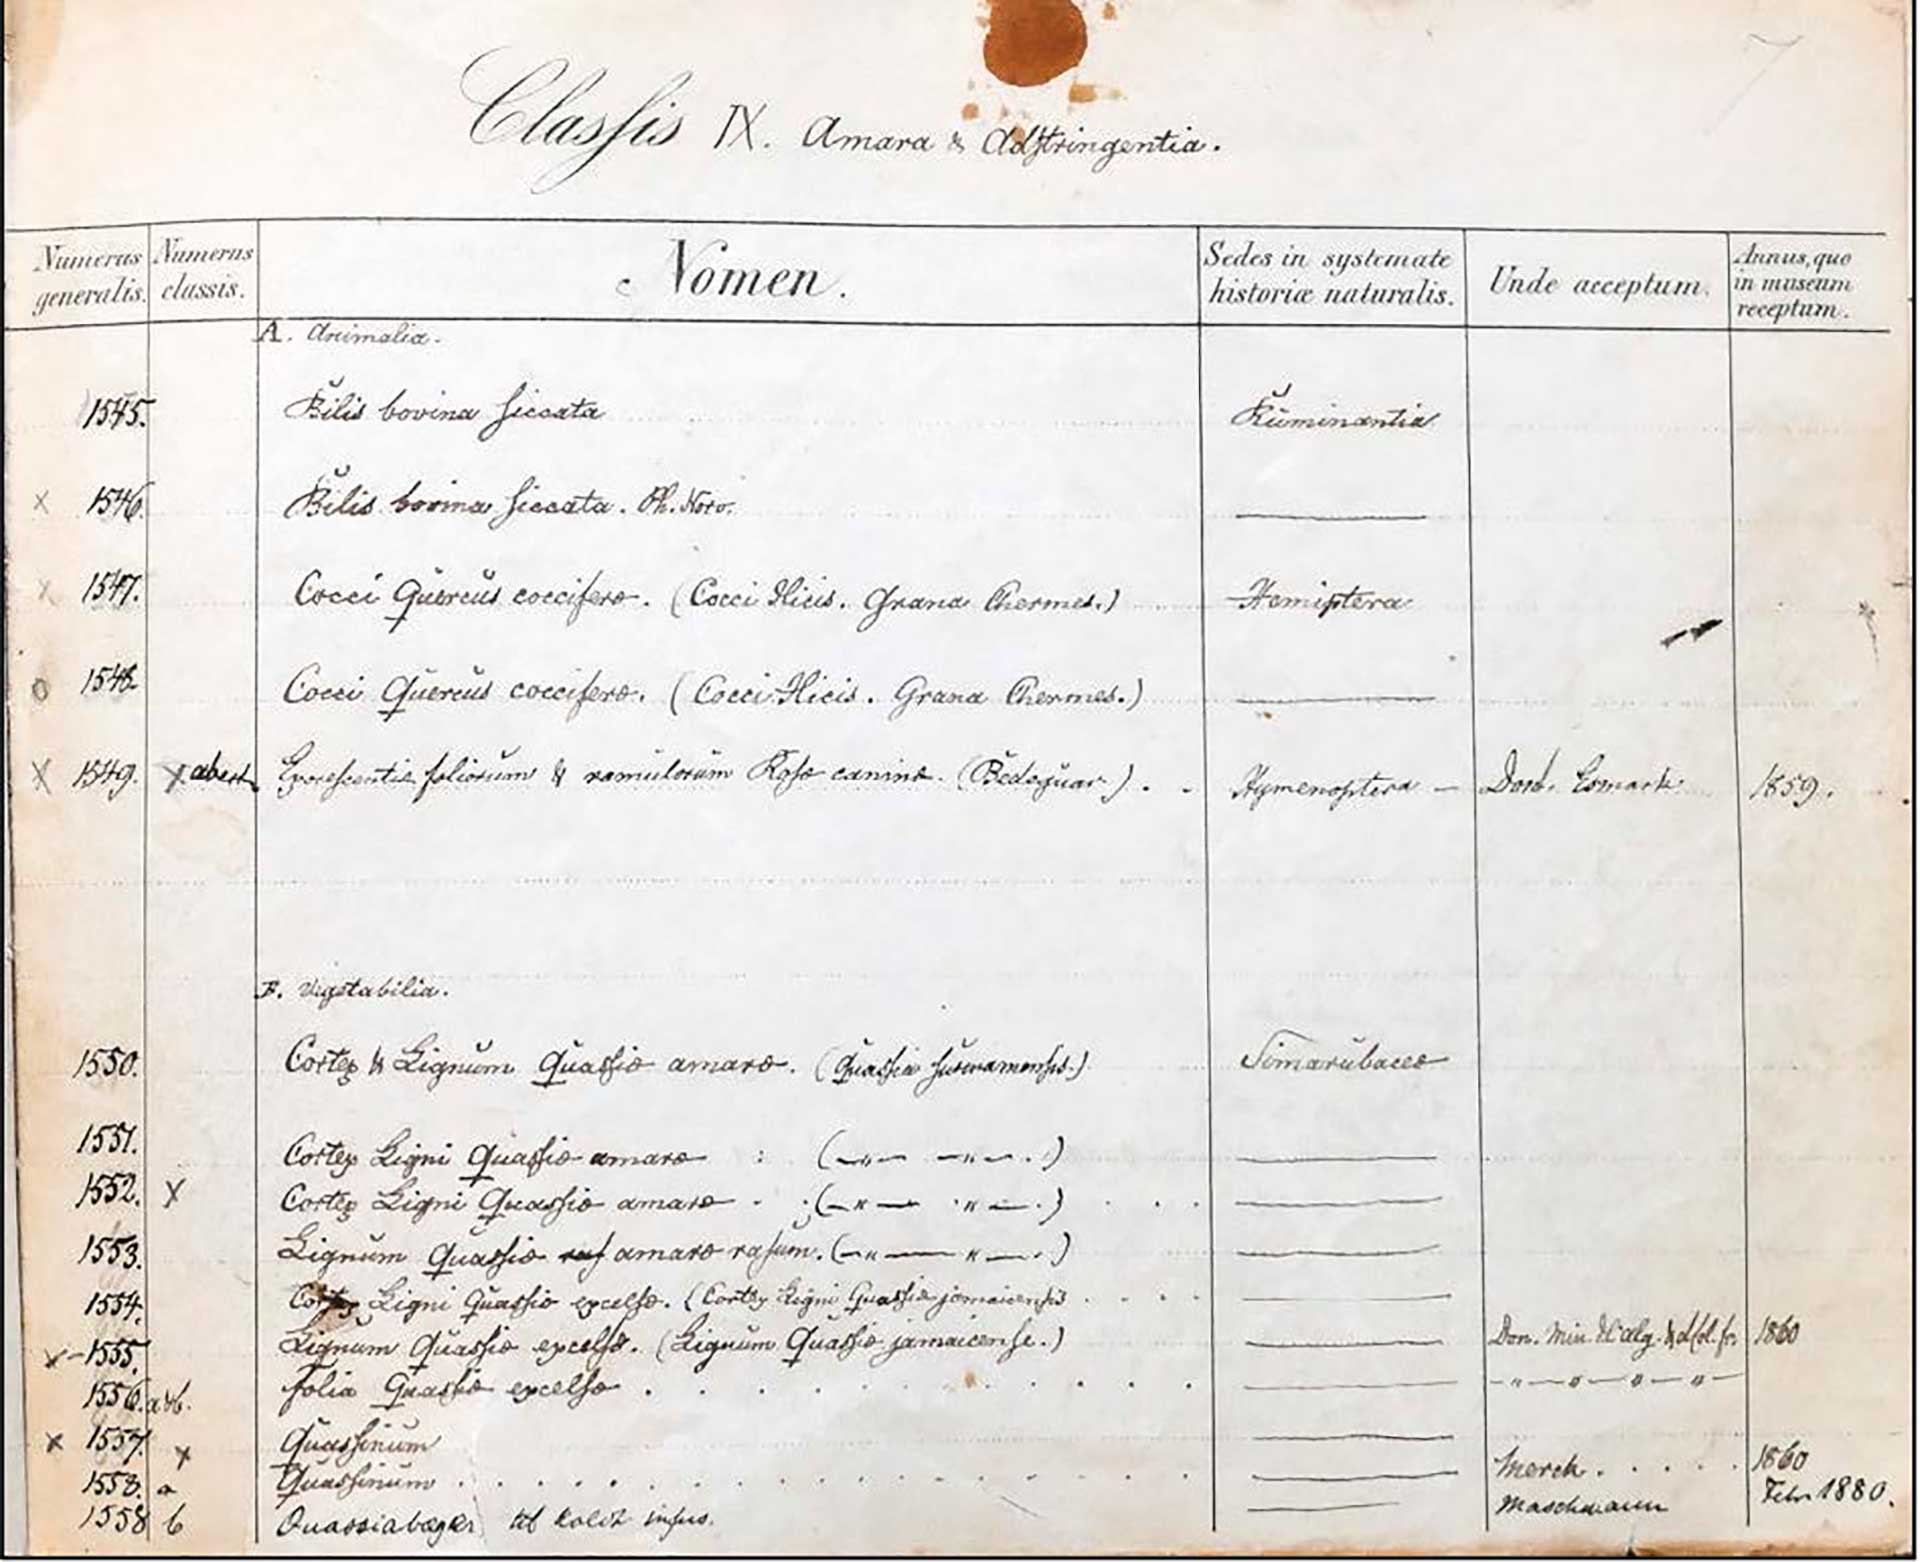 Classis IX. Amara & Adstringentia.
Numerus generalis. Numerus classis. Nomen. Sedes in systemate historiæ naturalis. Unde acceptum. Annus, quo in museum receptum.
A. Animalia.
1545. Bilis bovina siccata Ruminantia
x 1546. Bilis bovina siccata. Ph. Norv. ———
x 1547. Cocci Quercus cocciferæ. (Cocci Ilicis. Grana Chermes.) Hemiptera
o 1548. Cocci Quercus cocciferæ. (Cocci Ilicis. Grana Chermes.) ———
x 1549. x abest foliorum & ramulorum Rosæ caninæ. (Bedeguar.) . . Hymenoptera — Esmark 1859.
B. Vegetabilia.
1550. Cortex & Lignum Quassiæ amaræ. (Quassia surinamensis.) Simarubaceæ
1551. Cortex Ligni Quassiæ amaræ : (—"— —"— .) ———
1552. x Cortex Ligni Quassiæ amaræ . . (—"— "—.) . . . ———
1553. Lignum Quassiæ ras amaræ rasum. (—"— "—.) ———
1554. Cortex Ligni Quassiæ excelsæ. (Cortex Ligni Quassiæ jamaicensis . . . . ———
x - 1555. Lignum Quassiæ excelsæ. (Lignum Quassiæ jamaicense.) ——— Don. Min. 1860
1556. a & b. Folia Quassiæ excelsæ . . . . . . . . . ——— —"—"—"—"—
x 1557. x Quassinum ———
1558. a Quassinum . . . . . . . . . . . . . . ——— Merck . . . . . 1860
1558 b Quassiabæger til koldt infus. ——— Maschmann Febr 1880.